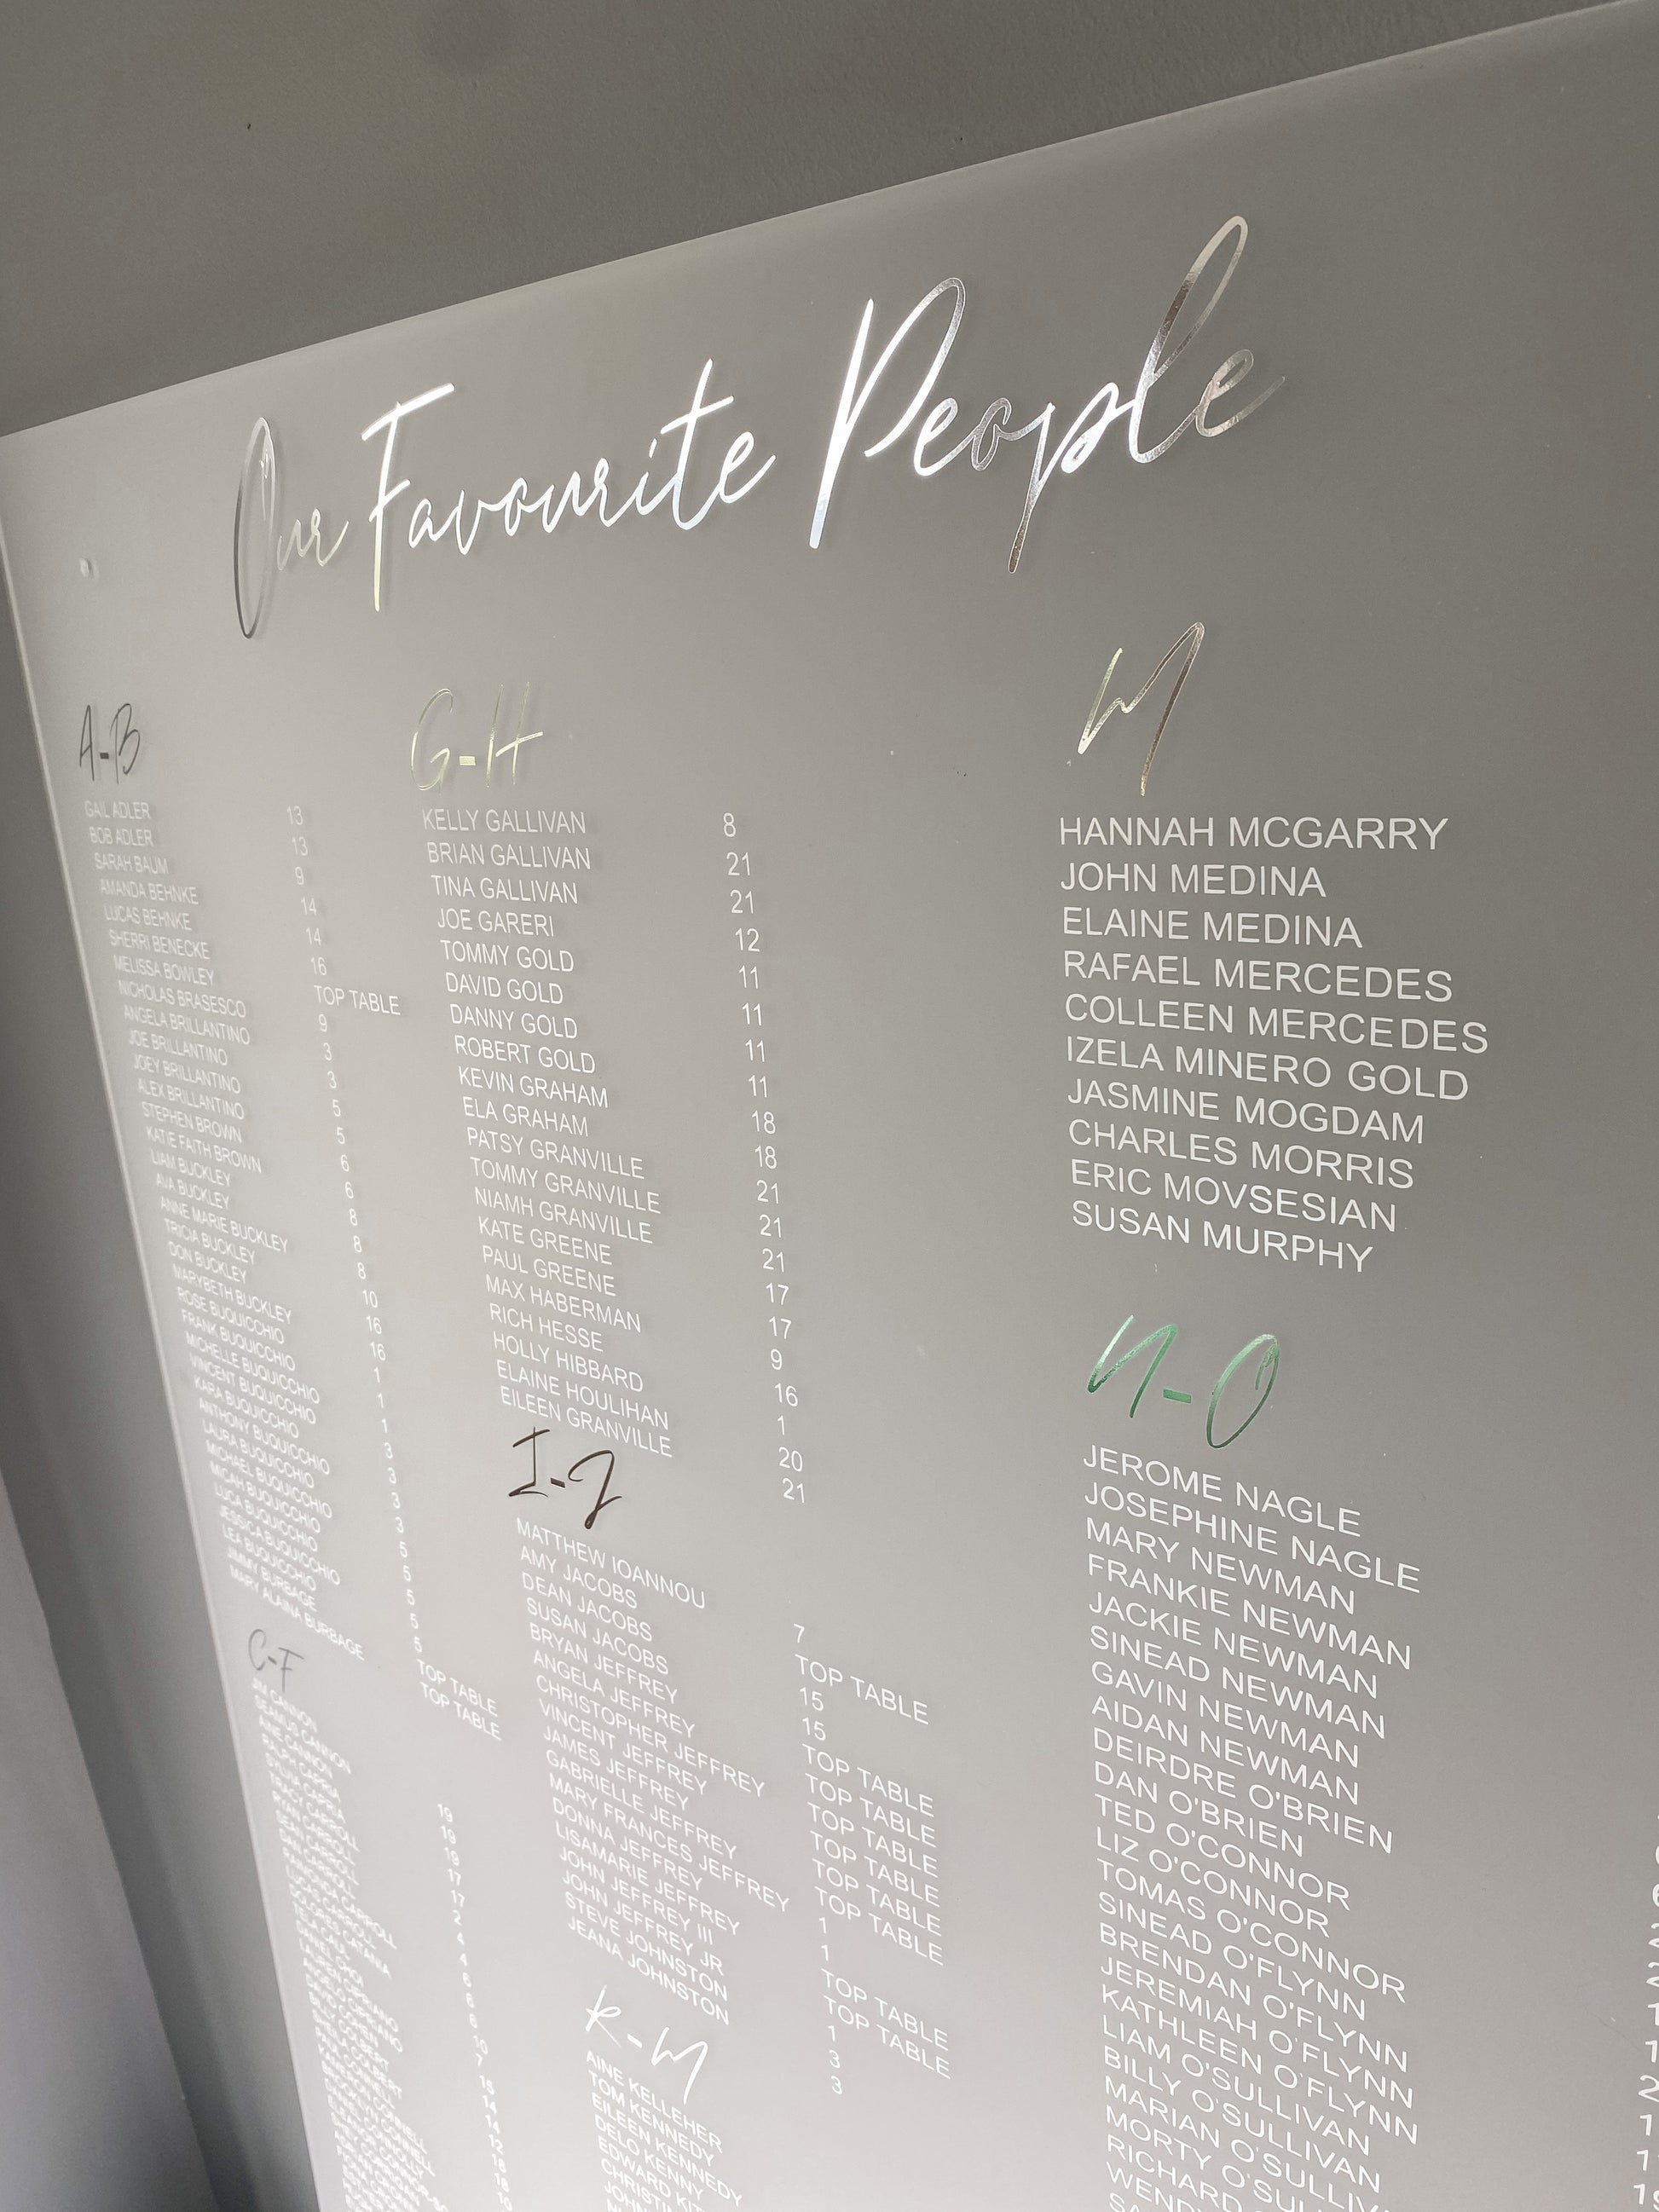 Our Favourite People
A-B
GAIL ADLER 13
BOB ADLER 13
SARAH BAUM 9
AMANDA BEHNKE 14
LUCAS BEHNKE 14
SHERRI BENECKE 16
MELISSA BOWLEY TOP TABLE
NICHOLAS BRASESCO 9
ANGELA BRILLANTINO 3
JOE BRILLANTINO 3
JOEY BRILLANTINO 5
ALEX BRILLANTINO 5
STEPHEN BROWN 6
KATIE FAITH BROWN 6
LIAM BUCKLEY 8
AVA BUCKLEY 8
ANNE MARIE BUCKLEY 8
TRICIA BUCKLEY 10
DON BUCKLEY 16
MARYBETH BUCKLEY 16
ROSE BUQUICCHIO 1
FRANK BUQUICCHIO 1
MICHELLE BUQUICCHIO 1
VINCENT BUQUICCHIO 3
KARA BUQUICCHIO 3
ANTHONY BUQUICCHIO 3
LAURA BUQUICCHIO 3
MICHAEL BUQUICCHIO 5
MICAH BUQUICCHIO 5
LUCA BUQUICCHIO 5
JESSICA BUQUICCHIO 5
LEA BUQUICCHIO 5
JIMMY BURBAGE TOP TABLE
MARY ALAINA BURBAGE TOP TABLE
C-F
JIM CANNON 19
SEAMUS CANNON 19
AINE CANNON 19
RALPH CAPRIA 17
SYLVIA CAPRIA 17
TRACY CARROLL 2
RYAN CARROLL 4
SEAN CARROLL 4
DAN CARROLL
G-H
KELLY GALLIVAN 8
BRIAN GALLIVAN 21
TINA GALLIVAN 21
JOE GARERI 12
TOMMY GOLD 11
DAVID GOLD 11
DANNY GOLD 11
ROBERT GOLD 11
KEVIN GRAHAM 18
ELA GRAHAM 18
PATSY GRANVILLE 21
TOMMY GRANVILLE 21
NIAMH GRANVILLE 21
KATE GREENE 17
PAUL GREENE 17
MAX HABERMAN 9
RICH HESSE 16
HOLLY HIBBARD 1
ELAINE HOULIHAN 20
EILEEN GRANVILLE 21
I-J
MATTHEW IOANNOU 7
AMY JACOBS TOP TABLE
DEAN JACOBS 15
SUSAN JACOBS 15
BRYAN JEFFREY TOP TABLE
ANGELA JEFFREY TOP TABLE
CHRISTOPHER JEFFREY TOP TABLE
VINCENT JEFFREY TOP TABLE
JAMES JEFFREY TOP TABLE
GABRIELLE JEFFREY TOP TABLE
MARY FRANCES JEFFREY 1
DONNA JEFFREY 1
LISAMARIE JEFFREY TOP TABLE
JOHN JEFFREY III TOP TABLE
JOHN JEFFREY JR 1
STEVE JOHNSTON 3
JEANA JOHNSTON 3
K-M
AINE KELLEHER
TOM KENNEDY
EILEEN KENNEDY
DELO KENNY
EDWARD
M
HANNAH MCGARRY
JOHN MEDINA
ELAINE MEDINA
RAFAEL MERCEDES
COLLEEN MERCEDES
IZELA MINERO GOLD
JASMINE MOGDAM
CHARLES MORRIS
ERIC MOVSESIAN
SUSAN MURPHY
N-O
JEROME NAGLE
JOSEPHINE NAGLE
MARY NEWMAN
FRANKIE NEWMAN
JACKIE NEWMAN
SINEAD NEWMAN
GAVIN NEWMAN
AIDAN NEWMAN
DEIRDRE O'BRIEN
DAN O'BRIEN
TED O'CONNOR
LIZ O'CONNOR
TOMAS O'CONNOR
SINEAD O'FLYNN
BRENDAN O'FLYNN
JEREMIAH O'FLYNN
KATHLEEN O'FLYNN
LIAM O'SULLIVAN
BILLY O'SULLIVAN
MARIAN O'SULLIVAN
MORTY
RICHARD